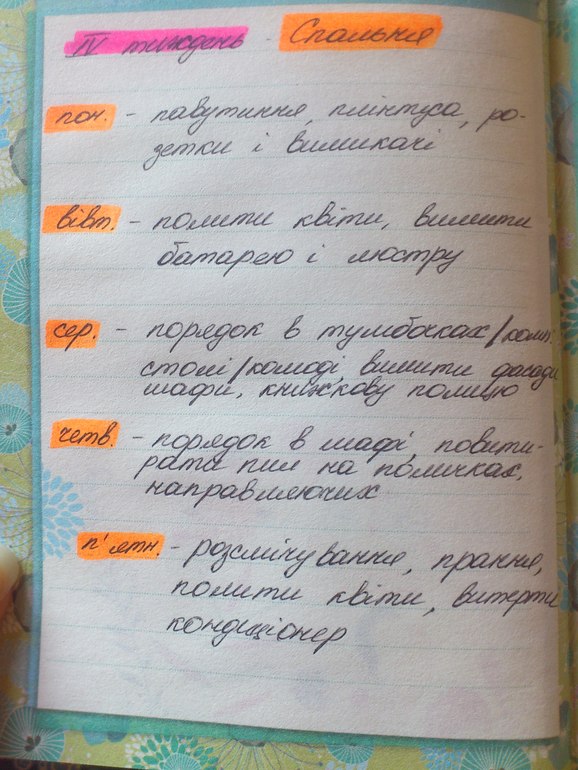 IV тиждень - Спальня
пон. - павутиння, плінтуса, ро-
зетки і вимикачі
вівт. - полити квіти, вимити
батарею і люстру
сер. - порядок в тумбочках/комп.
столі/комоді, вимити фасади
шафи, книжкову полицю
четв. - порядок в шафі, повити-
рати пил на поличках,
направляючих
п'ятн. - розсмічування, прання,
полити квіти, витерти
кондиціонер